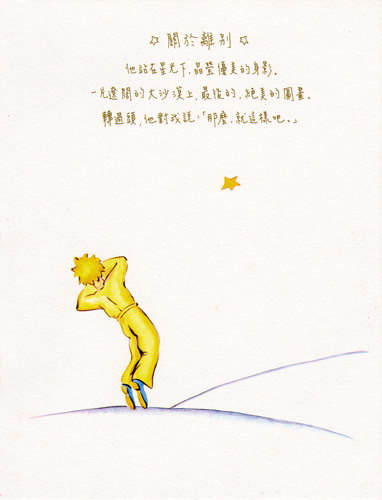 ☆ 關於離別 ☆
他站在星光下,晶瑩優美的身影.
一片遼闊的大沙漠上,最後的,絕美的圖畫.
轉過頭,他對我說,「那麼,就這樣吧。」